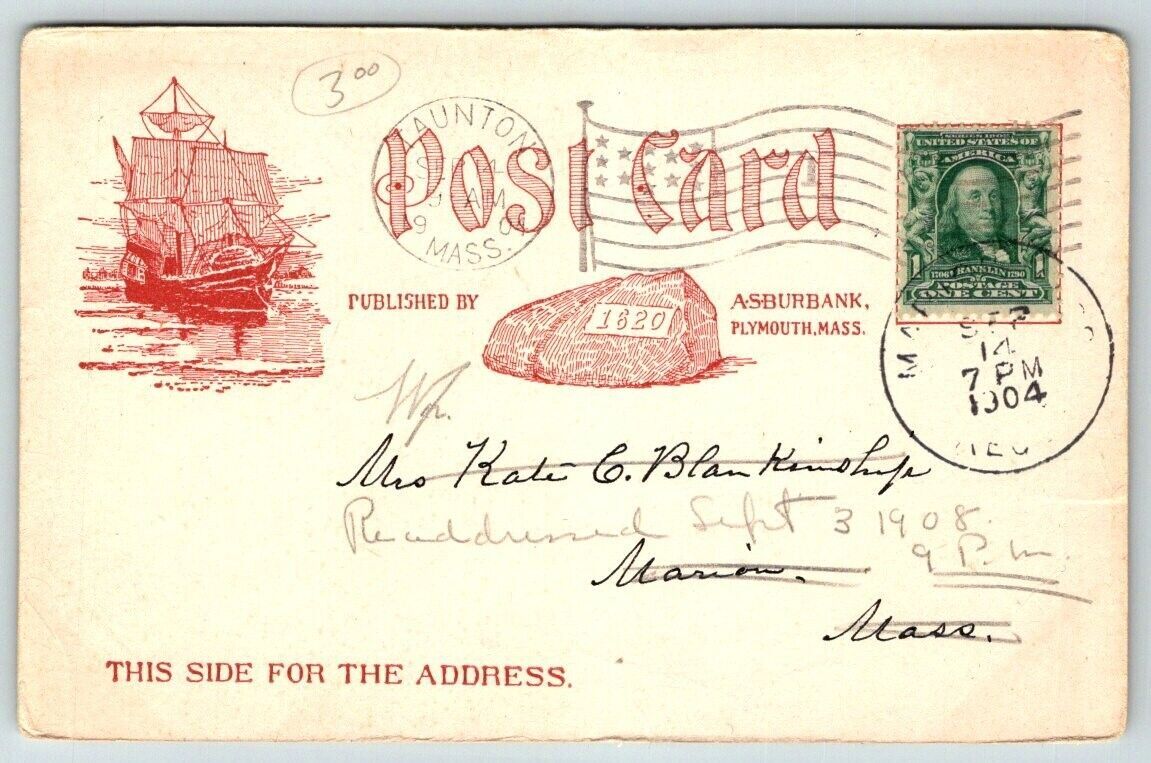 3.00
TAUNTON
MASS.
Post Card
SERIES 1902
UNITED STATES OF
AMERICA
1706 FRANKLIN 1790
1 1
POSTAGE
ONE CENT
PUBLISHED BY
1620
A.S. BURBANK,
PLYMOUTH, MASS.
SEP
14
7 PM
1904
REC
Mrs Kate C. Blankinship
Readdressed Sept 3 1908.
9 P.m.
Marion.
Mass.
THIS SIDE FOR THE ADDRESS.